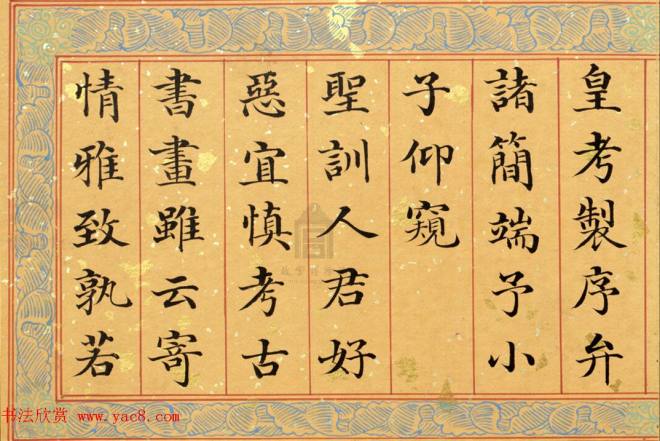 皇考製序弁
諸簡端予小
子仰窺
聖訓人君好
惡宜慎考古
書畫雖云寄
情雅致孰若
书法欣赏 www.yac8.com